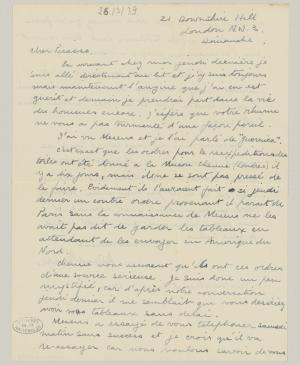 26/3/39
21 Downshire Hill
London N.W.3.
Dimanche
Cher Picasso,
En arrivant chez moi jeudi dernier je
suis allé directement au lit et j'y suis toujours
mais maintenant l'angine que j'ai eu est
guérit et demain je prendrai part dans la vie
du hommes encore. J'espère que votre rhume
ne vous a pas tourmenté d'une façon pareil.
J'ai vu Mesens et je l'ai parlé de "Guernica".
C'est exact que les ordres pour le reexpedition des
toiles ont été donné a la Maison Chenue (Londres) il
y a dix jours, mais de se sont pas pressé de
le faire. Evidement ils l'auraient fait si jeudi
dernier un contre ordre provenant il parait de
Paris sans la connaissance de Mesens ne les
avait pas dit de garder les tableaux en
attendant de les envoyer en Amerique du
Nord.
Chenue nous assurent qu'ils ont ces ordres
d'une source serieuse. Je suis donc un peu
mystifié, car d'après notre conversation
jeudi dernier il me semblait que vous desiriez
voir vos tableaux sans delai.
Mesens a essayé de vous telephoner samedi
matin sans success et je crois qu'il va
re-essayer car nous voulons savoir de vous